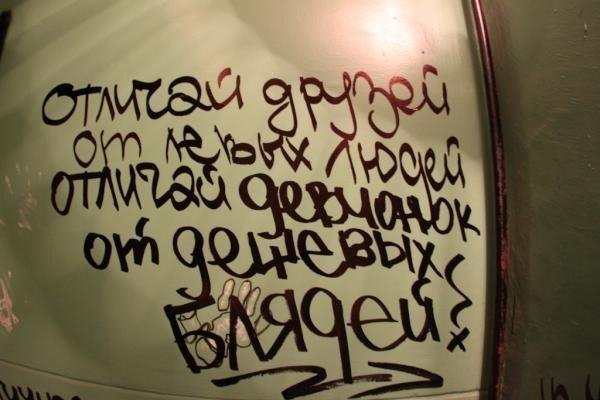 отличай друзей
от левых людей
отличай девчонок
от дешевых
Блядей!